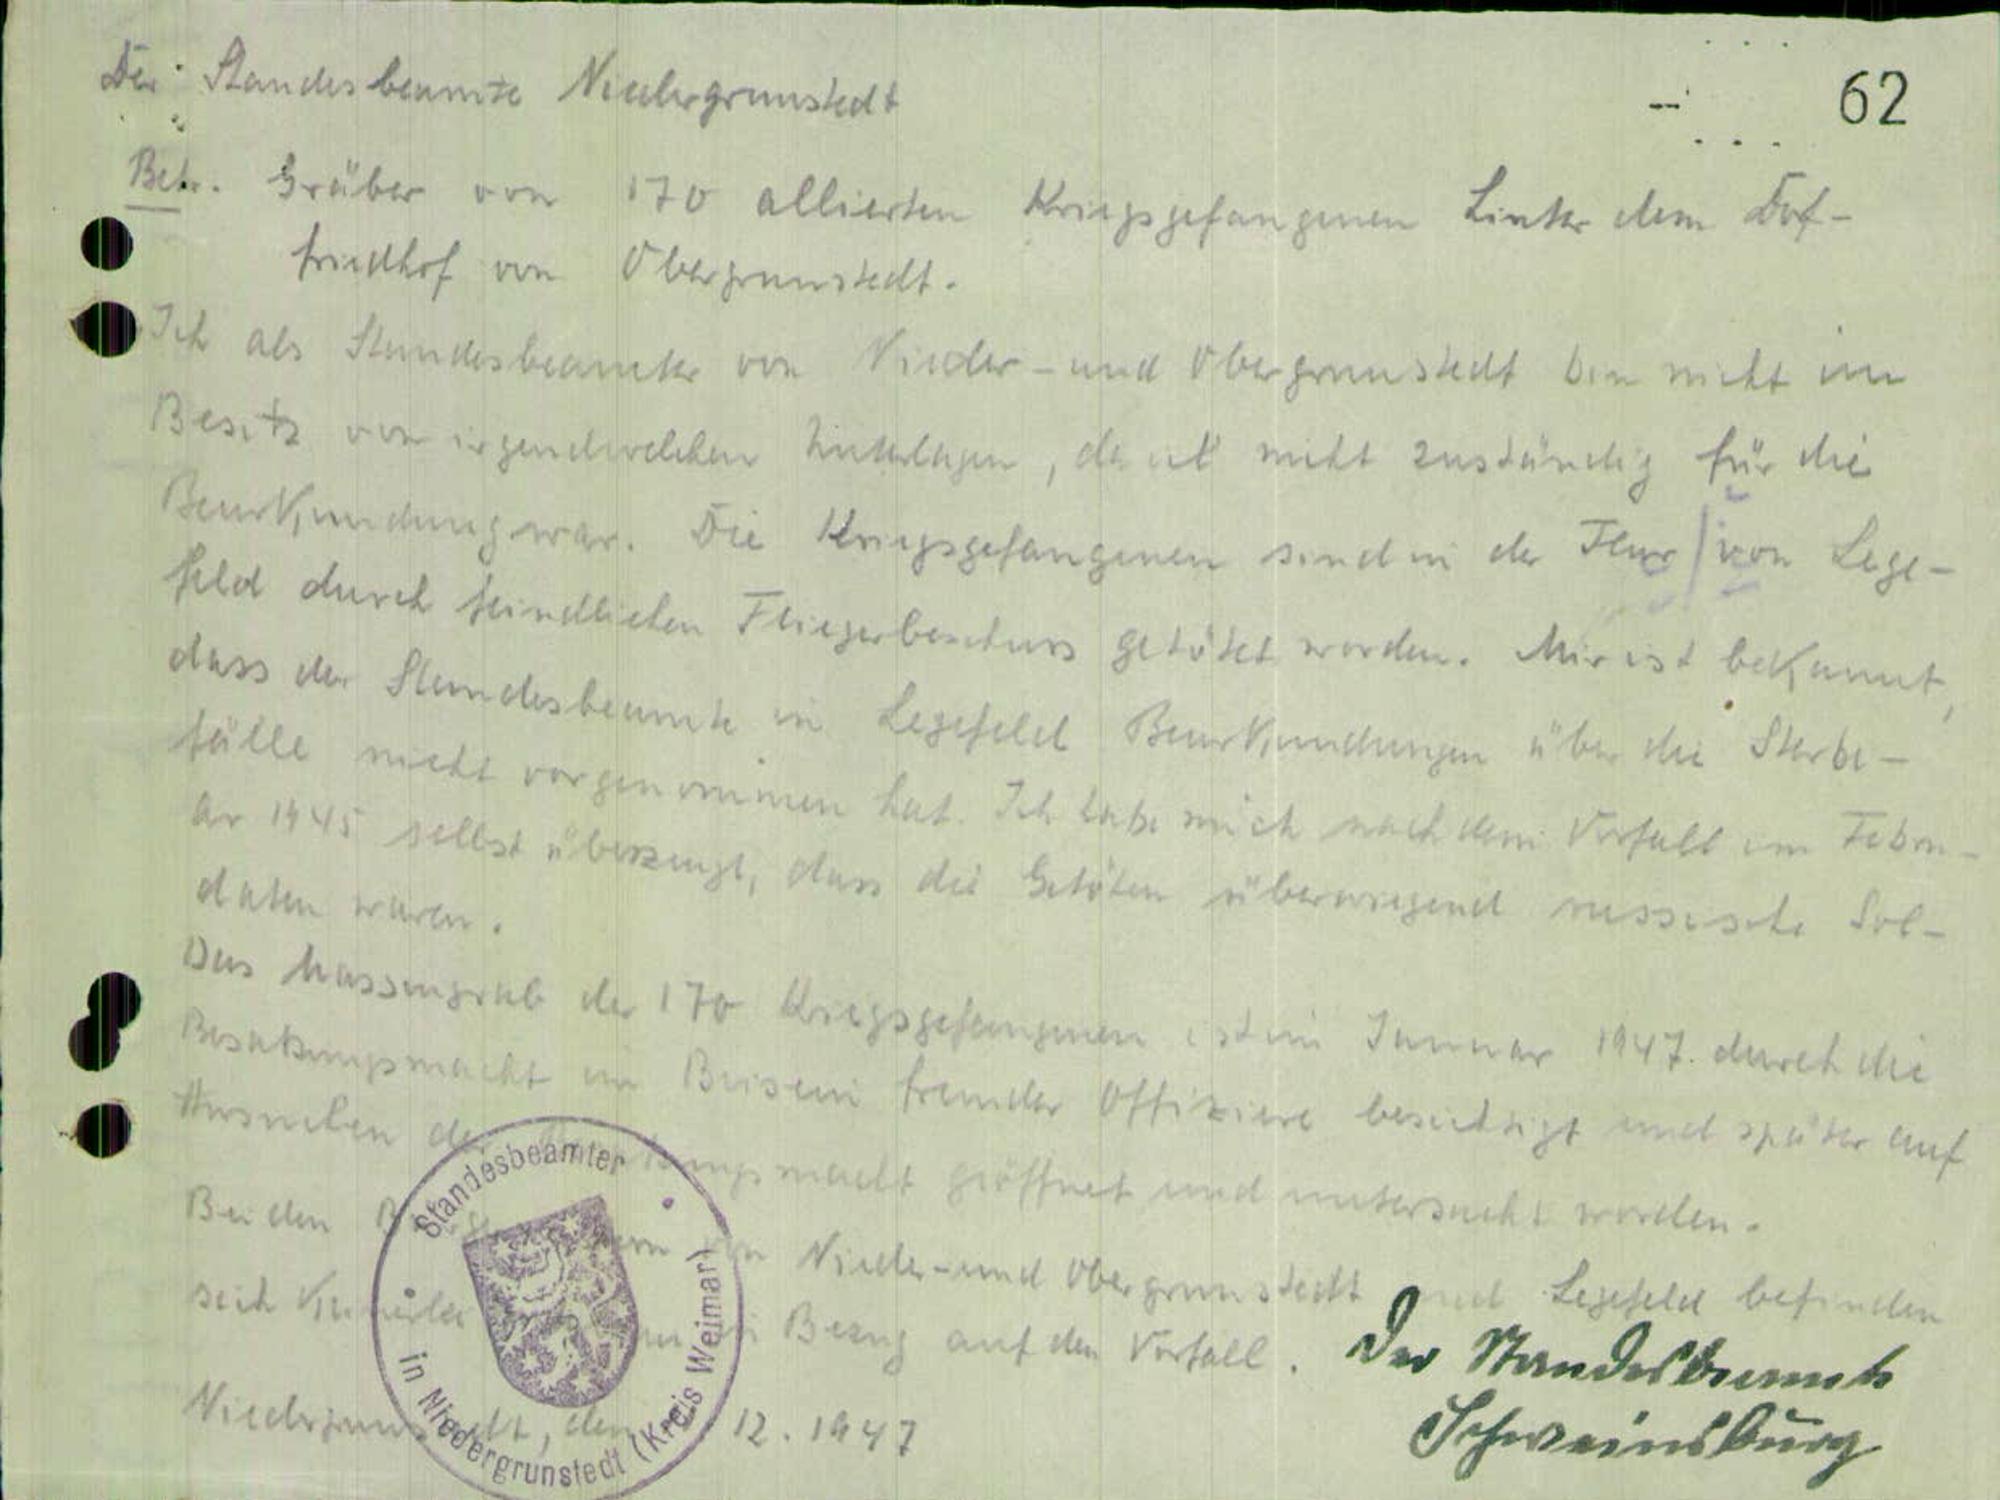 Der Standesbeamte Niedergrunstedt
62
Betr. Gräber von 170 alliierten Kriegsgefangenen hinter dem Dorf-
friedhof von Obergrunstedt.
Ich als Standesbeamter von Nieder- und Obergrunstedt bin nicht im
Besitz von irgendwelchen Unterlagen, da ich nicht zuständig für die
Beurkundung war. Die Kriegsgefangenen sind in der Flur von Lege-
feld durch feindlichen Fliegerbeschuss getötet worden. Mir ist bekannt,
dass der Standesbeamte in Legefeld Beurkundungen über die Sterbe-
fälle nicht vorgenommen hat. Ich habe mich nach dem Vorfall im Febru-
ar 1945 selbst überzeugt, dass die Getöten überwiegend russische Sol-
daten waren.
Das Massengrab der 170 Kriegsgefangenen ist im Januar 1947. durch die
Besatzungsmacht im Beisein fremder Offiziere besichtigt und später auf
der Besatzungsmacht geöffnet und untersucht worden.
Bei den Bürgermeistern von Nieder- und Obergrunstedt und Legefeld befinden
sich keinerlei in Bezug auf den Vorfall.
Niedergrunstedt, den 12. 1947
Der Standesbeamte
Schweinsburg
Standesbeamter
in Niedergrunstedt (Kreis Weimar)